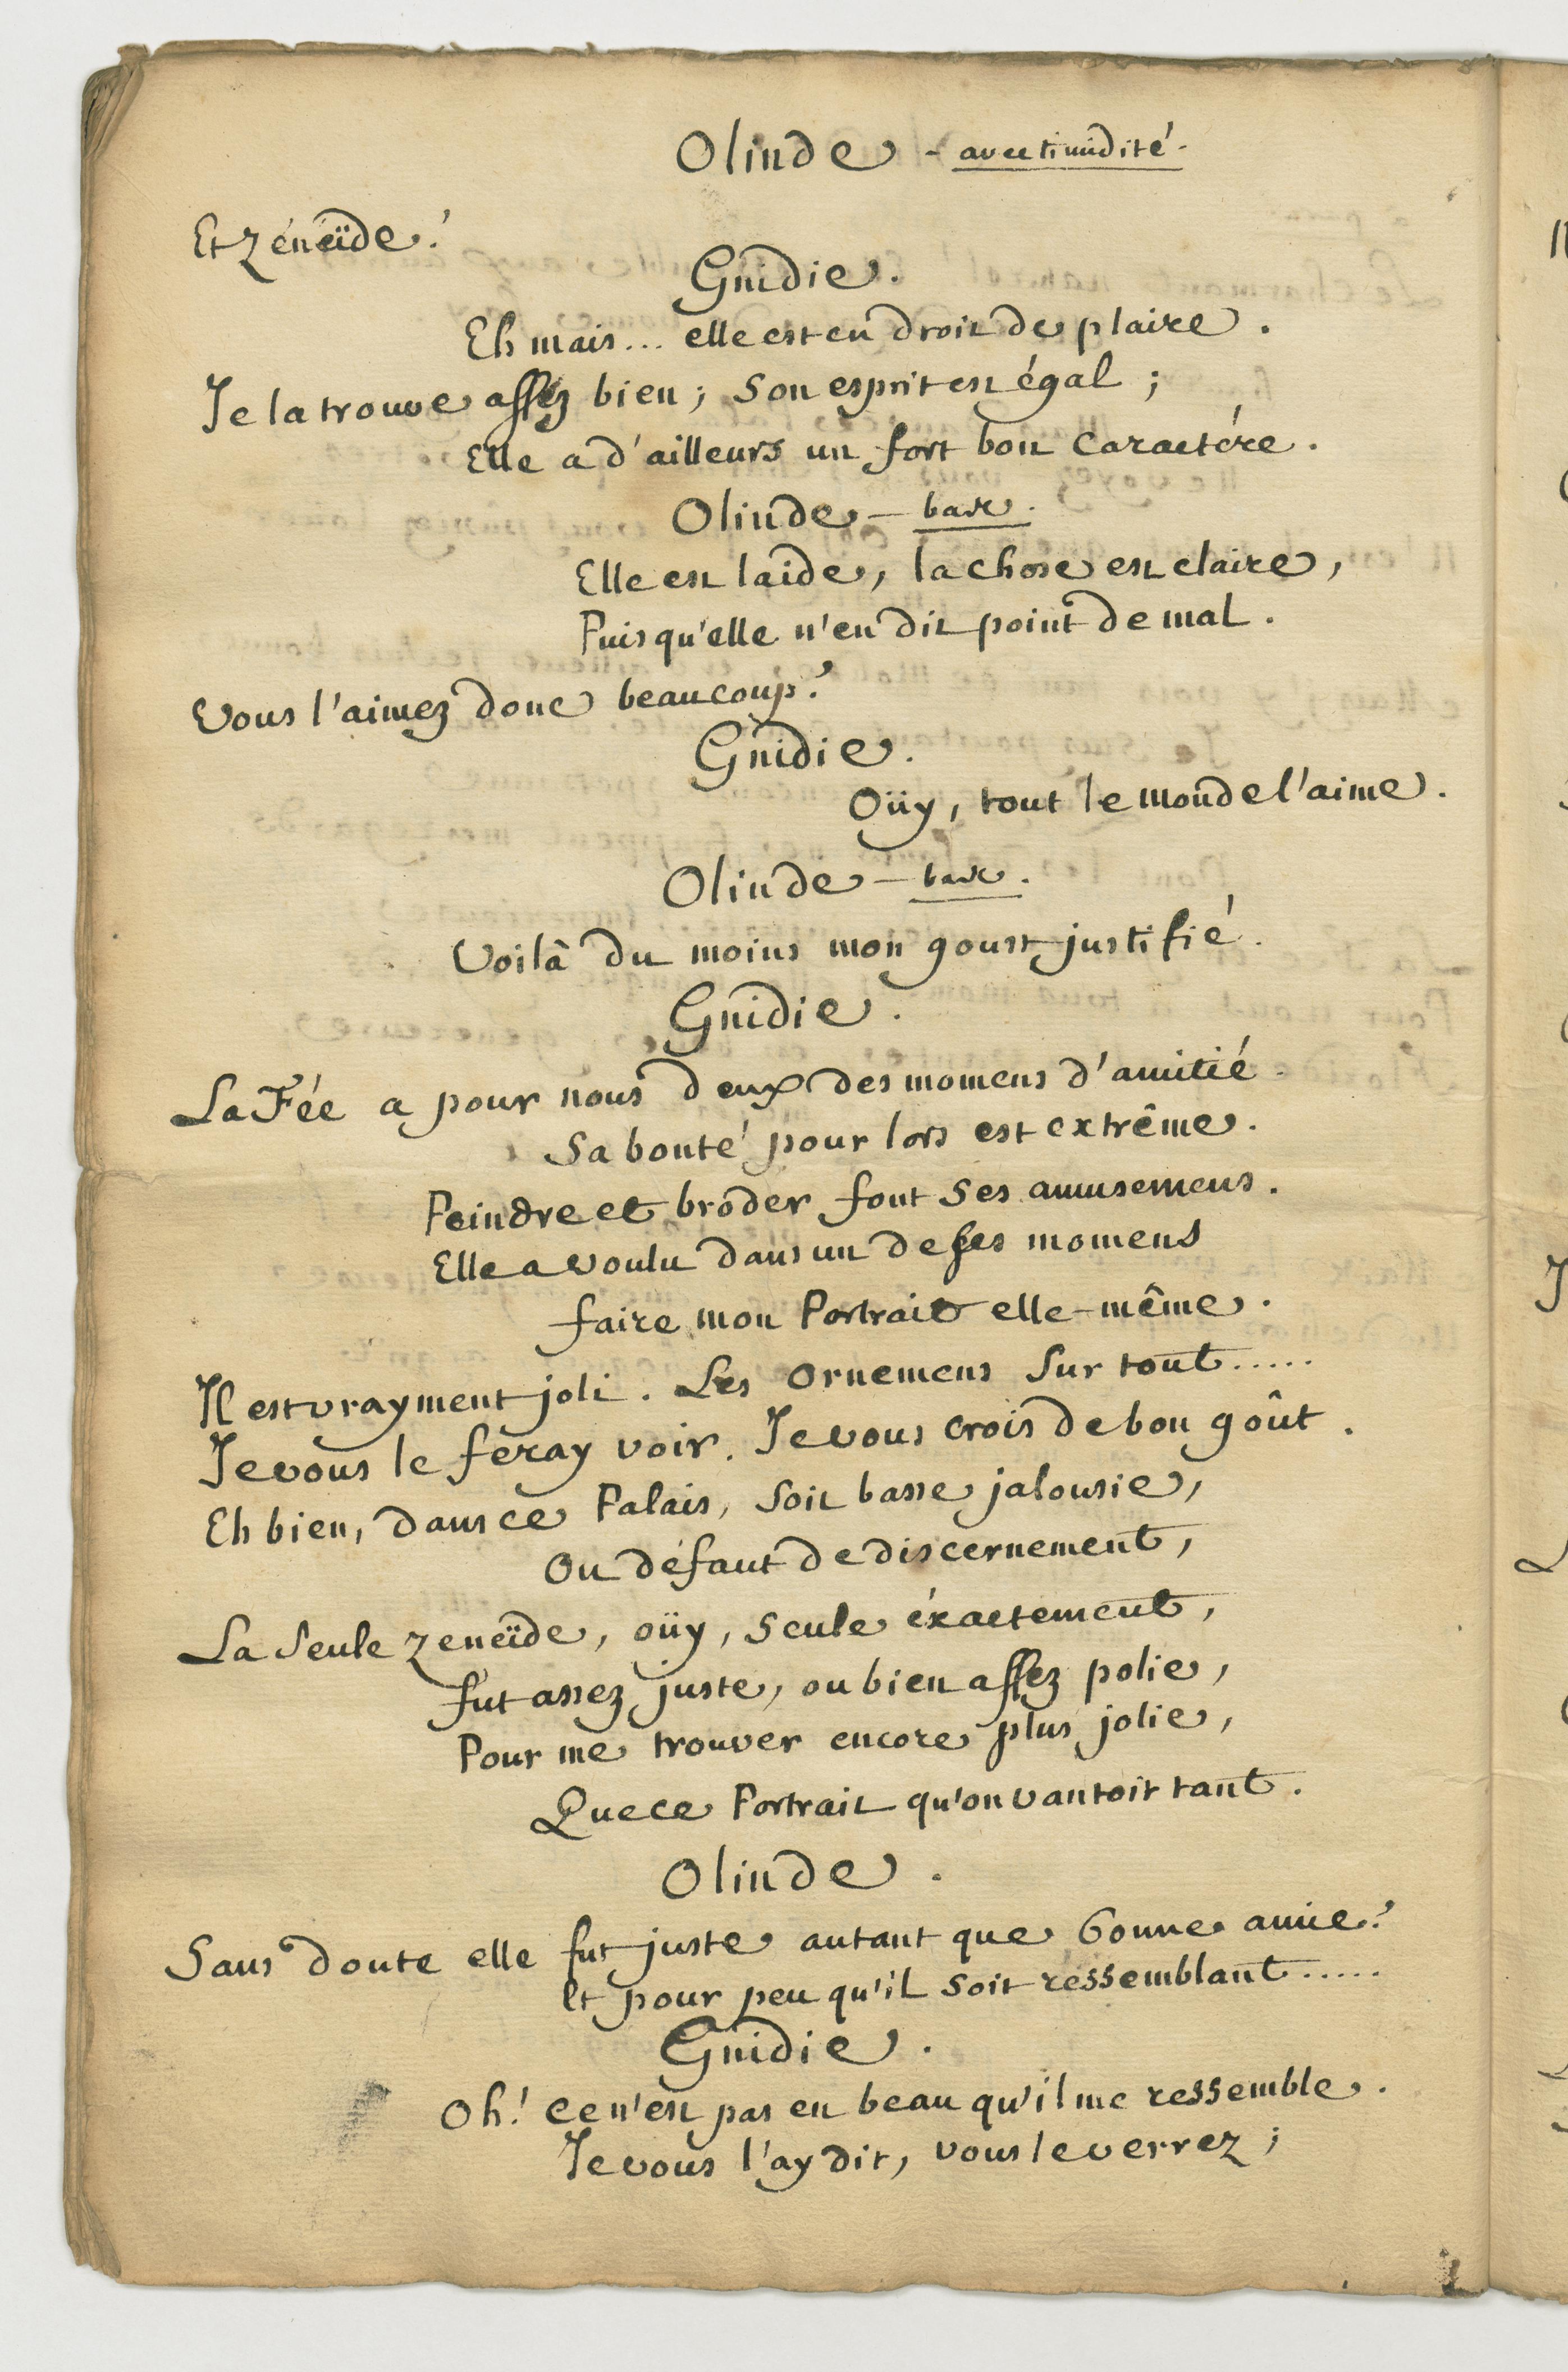 Olinde - avec timidité.
Et Zénéïde?
Gnidie.
Eh mais... elle est en droit de plaire.
Je la trouve assez bien; Son esprit est égal;
Elle a d'ailleurs un fort bon Caractére.
Olinde - bas.
Elle est laide, la chose est claire,
Puisqu'elle n'en dit point de mal.
Vous l'aimez donc beaucoup?
Gnidie.
Oüy, tout le monde l'aime.
Olinde - bas.
Voilà du moins mon goust justifié.
Gnidie.
La Fée a pour nous deux des momens d'amitié.
Sa bonté pour lors est extrême.
Peindre et broder font ses amusemens.
Elle a voulu dans un de ses momens
faire mon Portrait elle-même.
Il est vrayment joli. Les Ornemens Sur tout.....
Je vous le feray voir. Je vous crois de bon goût.
Eh bien, dans ce Palais, Soit basse jalousie,
Ou défaut de discernement,
La Seule Zeneïde, oüy, Seule éxactement,
fut assez juste, ou bien assez polie,
Pour me trouver encore plus jolie,
Que ce Portrait qu'on vantoit tant.
Olinde.
Sans doute elle fut juste autant que bonne amie?
Et pour peu qu'il soit ressemblant.....
Gnidie.
Oh! ce n'est pas en beau qu'il me ressemble.
Je vous l'ay dit, vous le verrez;